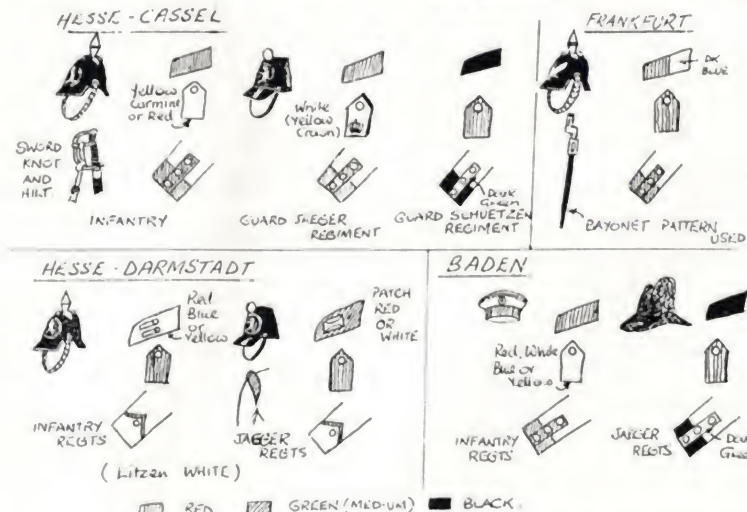 HESSE-CASSEL
Yellow
Carmine
or Red
SWORD
KNOT
AND
HILT.
INFANTRY
White
(Yellow
Crown)
GUARD JAEGER
REGIMENT
Dark
Green
GUARD SCHUETZEN
REGIMENT
FRANKFURT
DK
BLUE
BAYONET PATTERN
USED
HESSE-DARMSTADT
Red
Blue
or
Yellow
INFANTRY
REGTS
PATCH
RED
OR
WHITE
JAEGER
REGTS
(Litzen WHITE)
BADEN
Red, White
Blue or
Yellow
INFANTRY
REGTS
JAEGER
REGTS
RED
GREEN (MEDIUM)
BLACK.